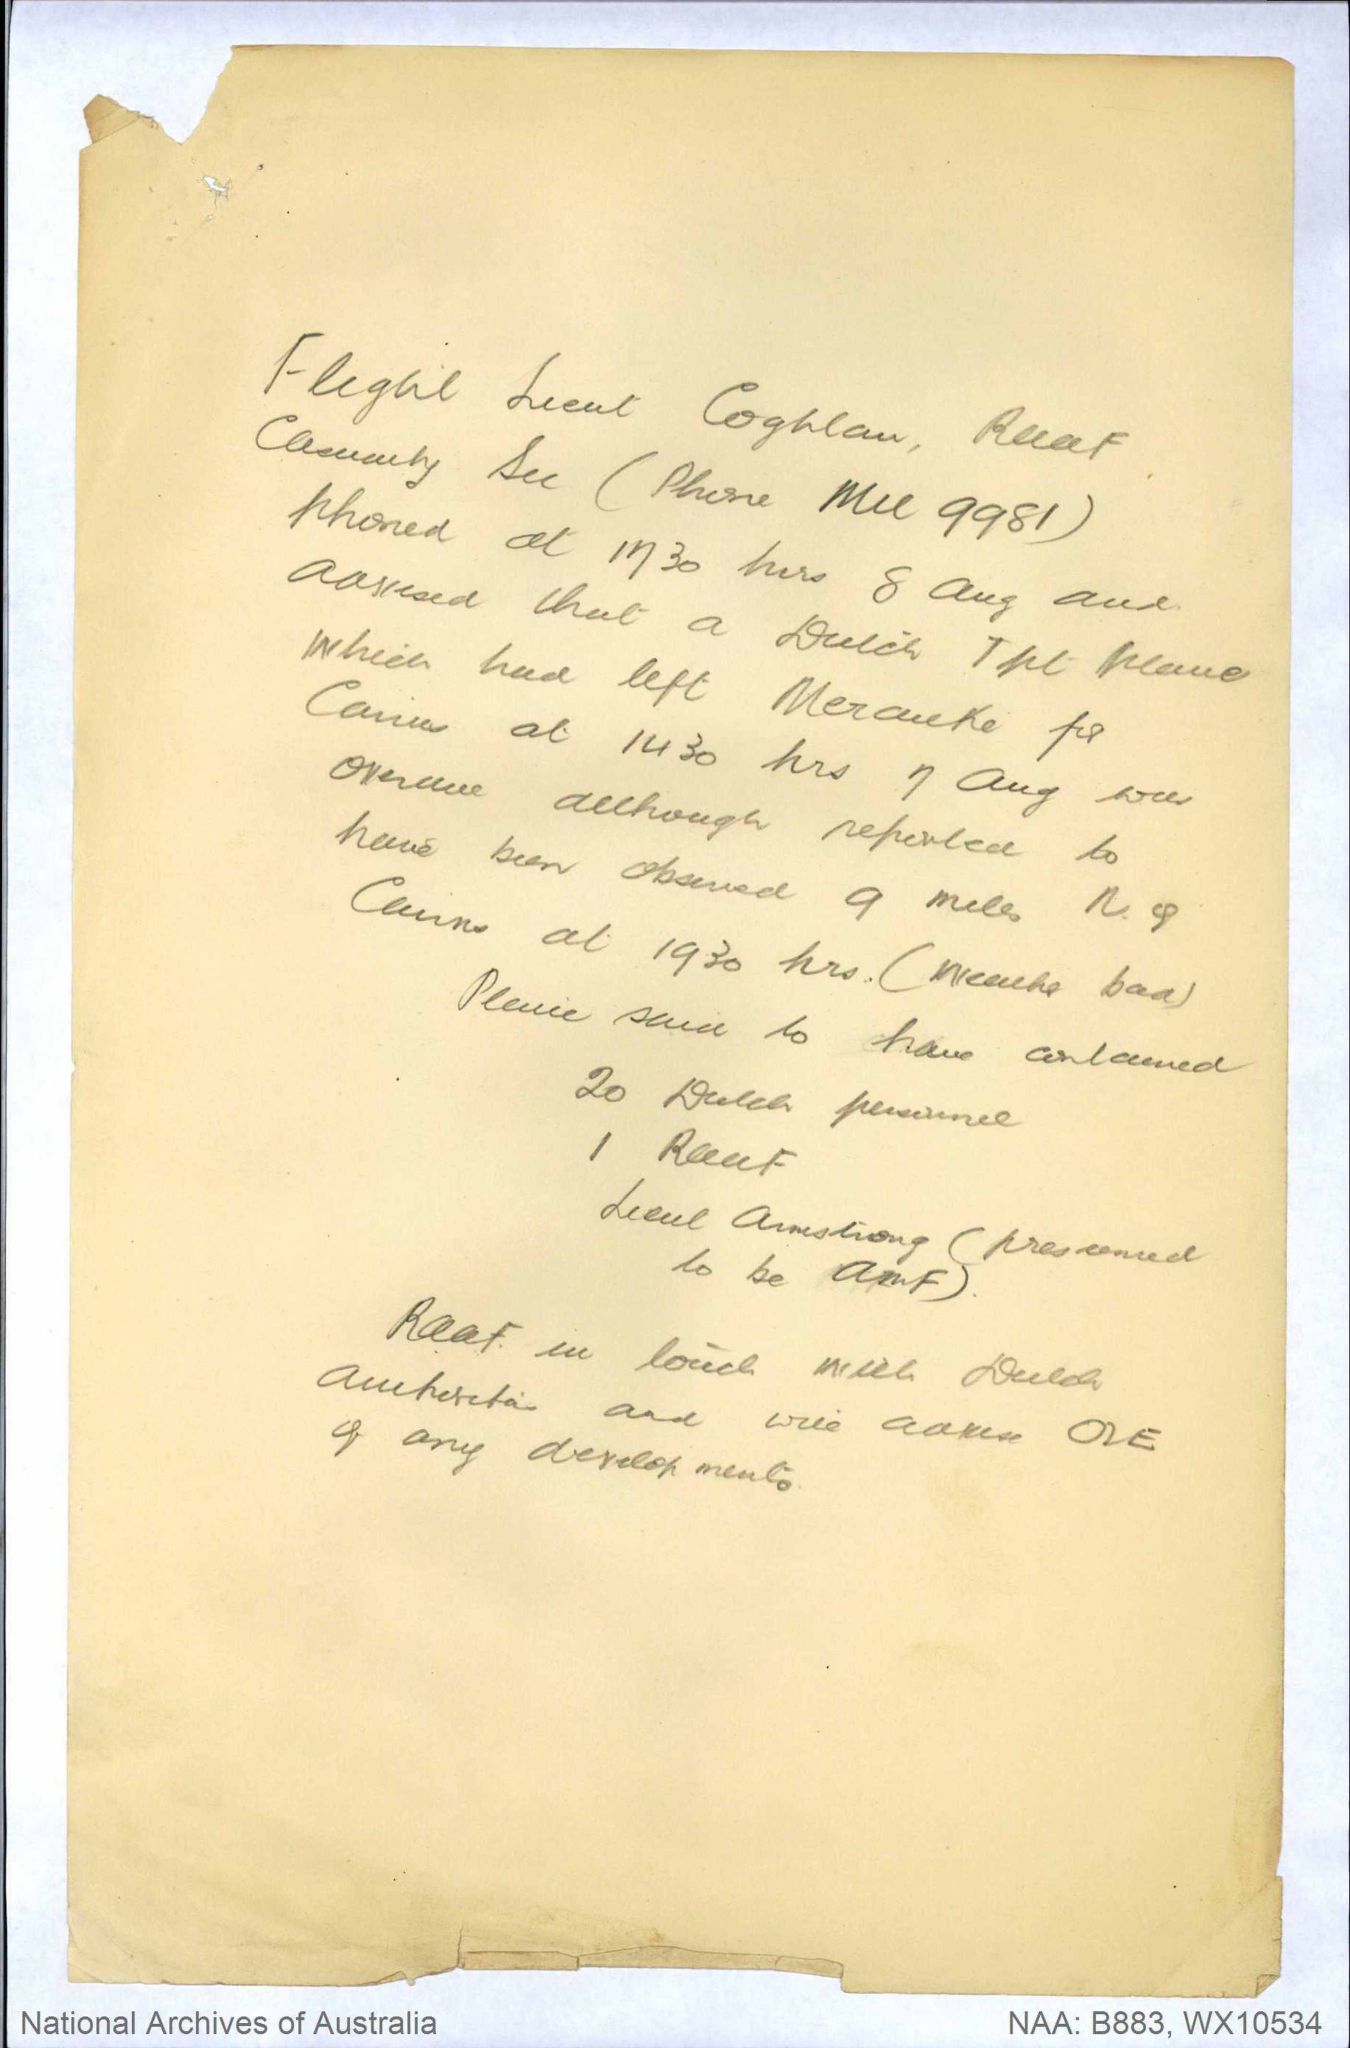 Flight Lieut Coghlan, RAAF
Casualty Sec (Phone MU 9981)
phoned at 1730 hrs 8 Aug and
advised that a Dutch Tpt Plane
which had left Merauke for
Cairns at 1430 hrs 7 Aug was
overdue although reported to
have been observed 9 miles N. of
Cairns at 1930 hrs. (Weather bad)
Plane said to have contained
20 Dutch personnel
1 RAAF
Lieut Armstrong (presumed
to be AMF).
RAAF in touch with Dutch
Authorities and will advise
of any developments.
National Archives of Australia
NAA: B883, WX10534